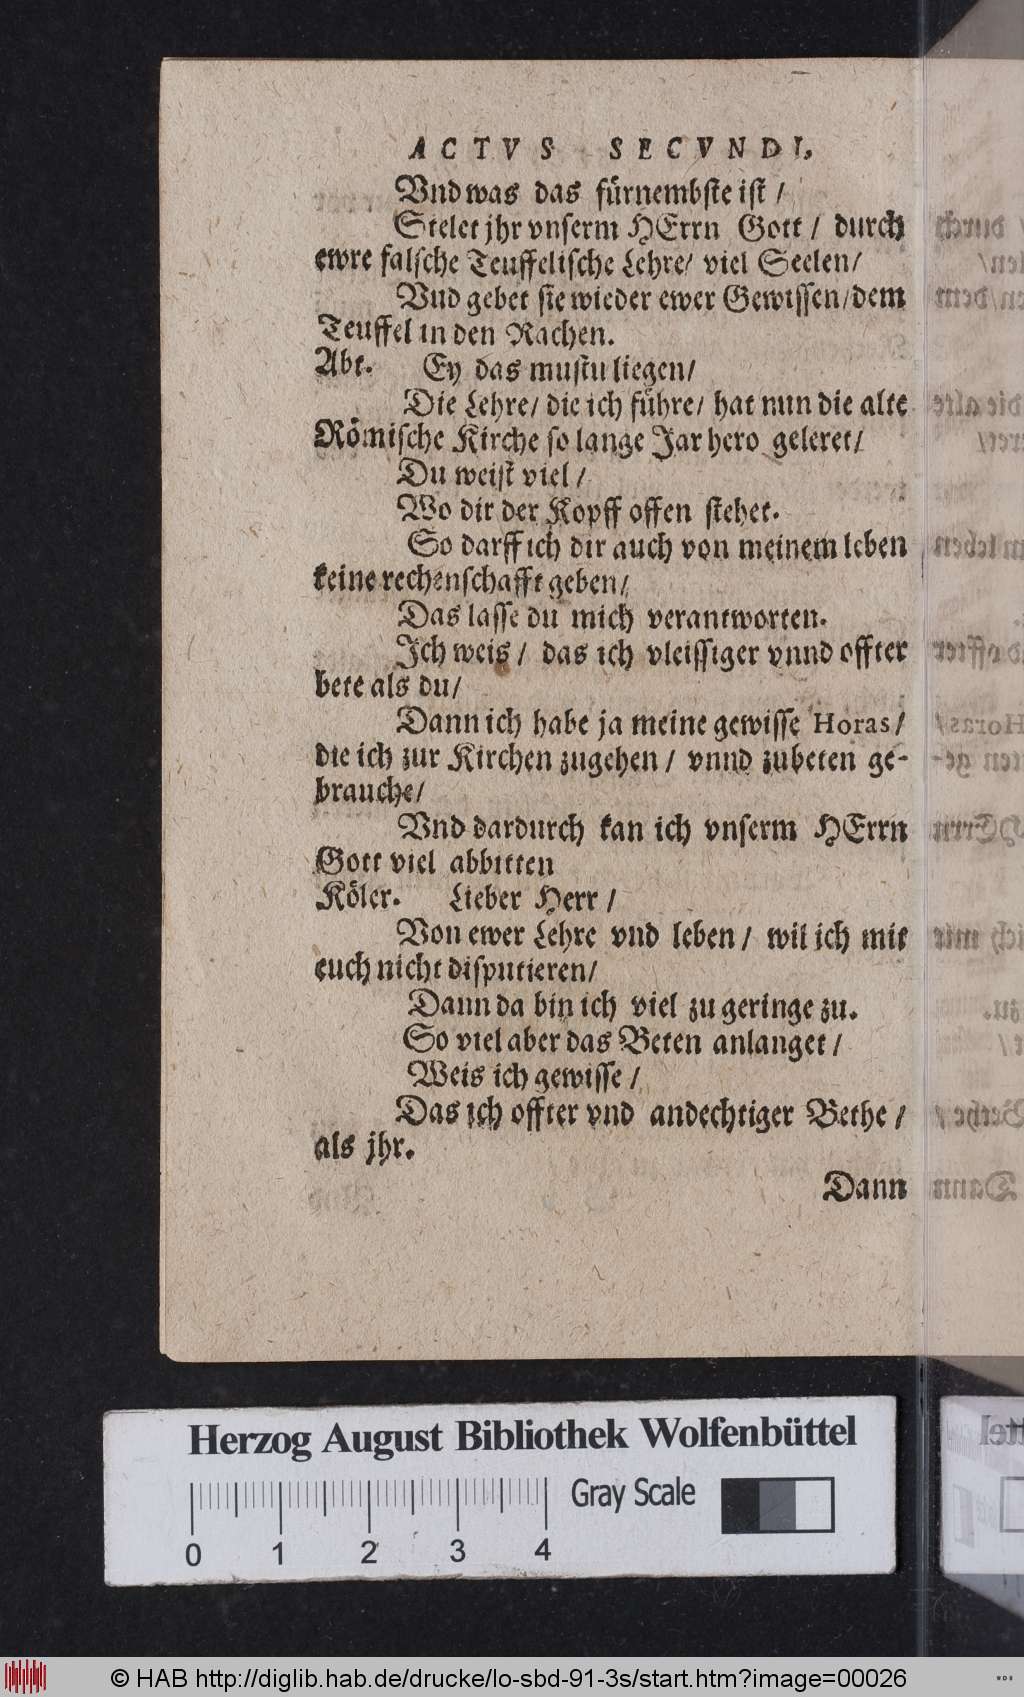 ACTVS SECVNDI.
Vnd was das fürnembste ist /
Stelet jhr vnserm HErrn Gott / durch
ewre falsche Teuffelische Lehre/ viel Seelen/
Vnd gebet sie wieder ewer Gewissen/dem
Teuffel in den Rachen.
Abt. Ey das mustu liegen/
Die Lehre/ die ich führe/ hat nun die alte
Römische Kirche so lange Jar hero geleret/
Du weist viel /
Wo dir der Kopff offen stehet.
So darff ich dir auch von meinem leben
keine rechenschafft geben/
Das lasse du mich verantworten.
Ich weis / das ich vleissiger vnnd offter
bete als du/
Dann ich habe ja meine gewisse Horas/
die ich zur Kirchen zugehen / vnnd zubeten ge-
brauche/
Vnd dardurch kan ich vnserm HErrn
Gott viel abbitten
Köler. Lieber Herr /
Von ewer Lehre vnd leben / wil ich mit
euch nicht disputieren/
Dann da bin ich viel zu geringe zu.
So viel aber das Beten anlanget /
Weis ich gewisse /
Das ich offter vnd andechtiger Bethe /
als jhr.
Dann
Herzog August Bibliothek Wolfenbüttel
Gray Scale
0 1 2 3 4
© HAB http://diglib.hab.de/drucke/lo-sbd-91-3s/start.htm?image=00026